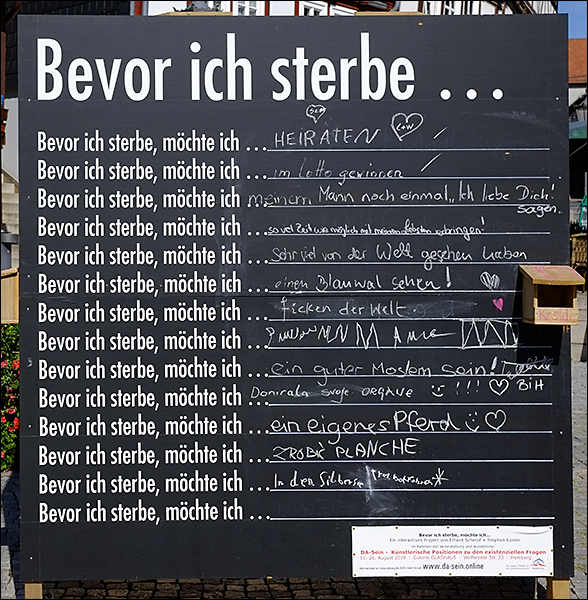 Bevor ich sterbe ...
Bevor ich sterbe, möchte ich ... HEIRATEN L+W
Bevor ich sterbe, möchte ich ... im Lotto gewinnen
Bevor ich sterbe, möchte ich ... meinem Mann noch einmal „Ich liebe Dich! sagen.
Bevor ich sterbe, möchte ich ... so viel Zeit wie möglich mit meinen liebsten verbringen!
Bevor ich sterbe, möchte ich ... sehr viel von der Welt gesehen haben
Bevor ich sterbe, möchte ich ... einen Blauwal sehen!
Bevor ich sterbe, möchte ich ... ficken der Welt.
Bevor ich sterbe, möchte ich ...
Bevor ich sterbe, möchte ich ... ein guter Moslem sein!
Bevor ich sterbe, möchte ich ... Donirala svoje ORGANE !!! BiH
Bevor ich sterbe, möchte ich ... ein eigenes Pferd
Bevor ich sterbe, möchte ich ... ZROBIĆ PLANCHE
Bevor ich sterbe, möchte ich ... In den Silbersee
Bevor ich sterbe, möchte ich ...
Kreide
Bevor ich sterbe, möchte ich...
Ein interaktives Projekt von Erhard Scherpf + Stephan Küster
im Rahmen der Veranstaltung und Ausstellung:
DA-Sein - Künstlerische Positionen zu den existenziellen Fragen
11.-26. August 2018 · Galerie GLASHAUS · Welferoder Str. 23 · Homberg
www.da-sein.online